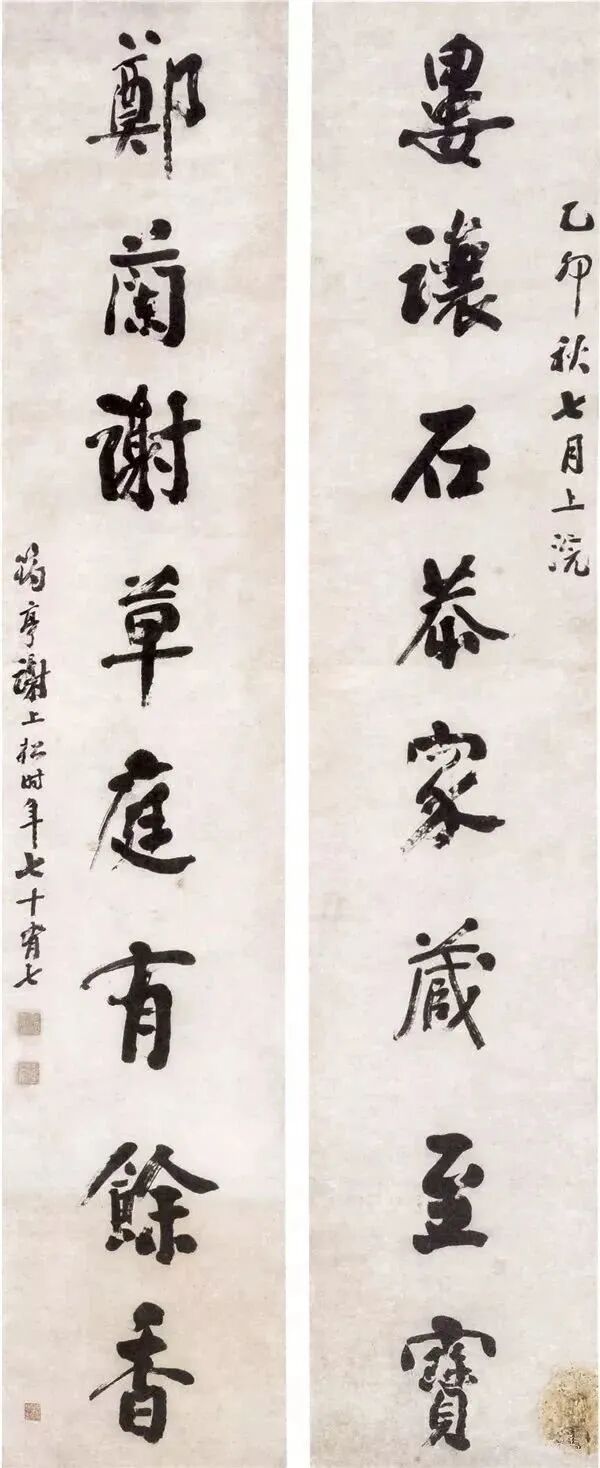 乙卯秋七月上浣
婁讓石恭家藏至寶
鄭蘭謝草庭有餘香
亭謝上松时年七十有七